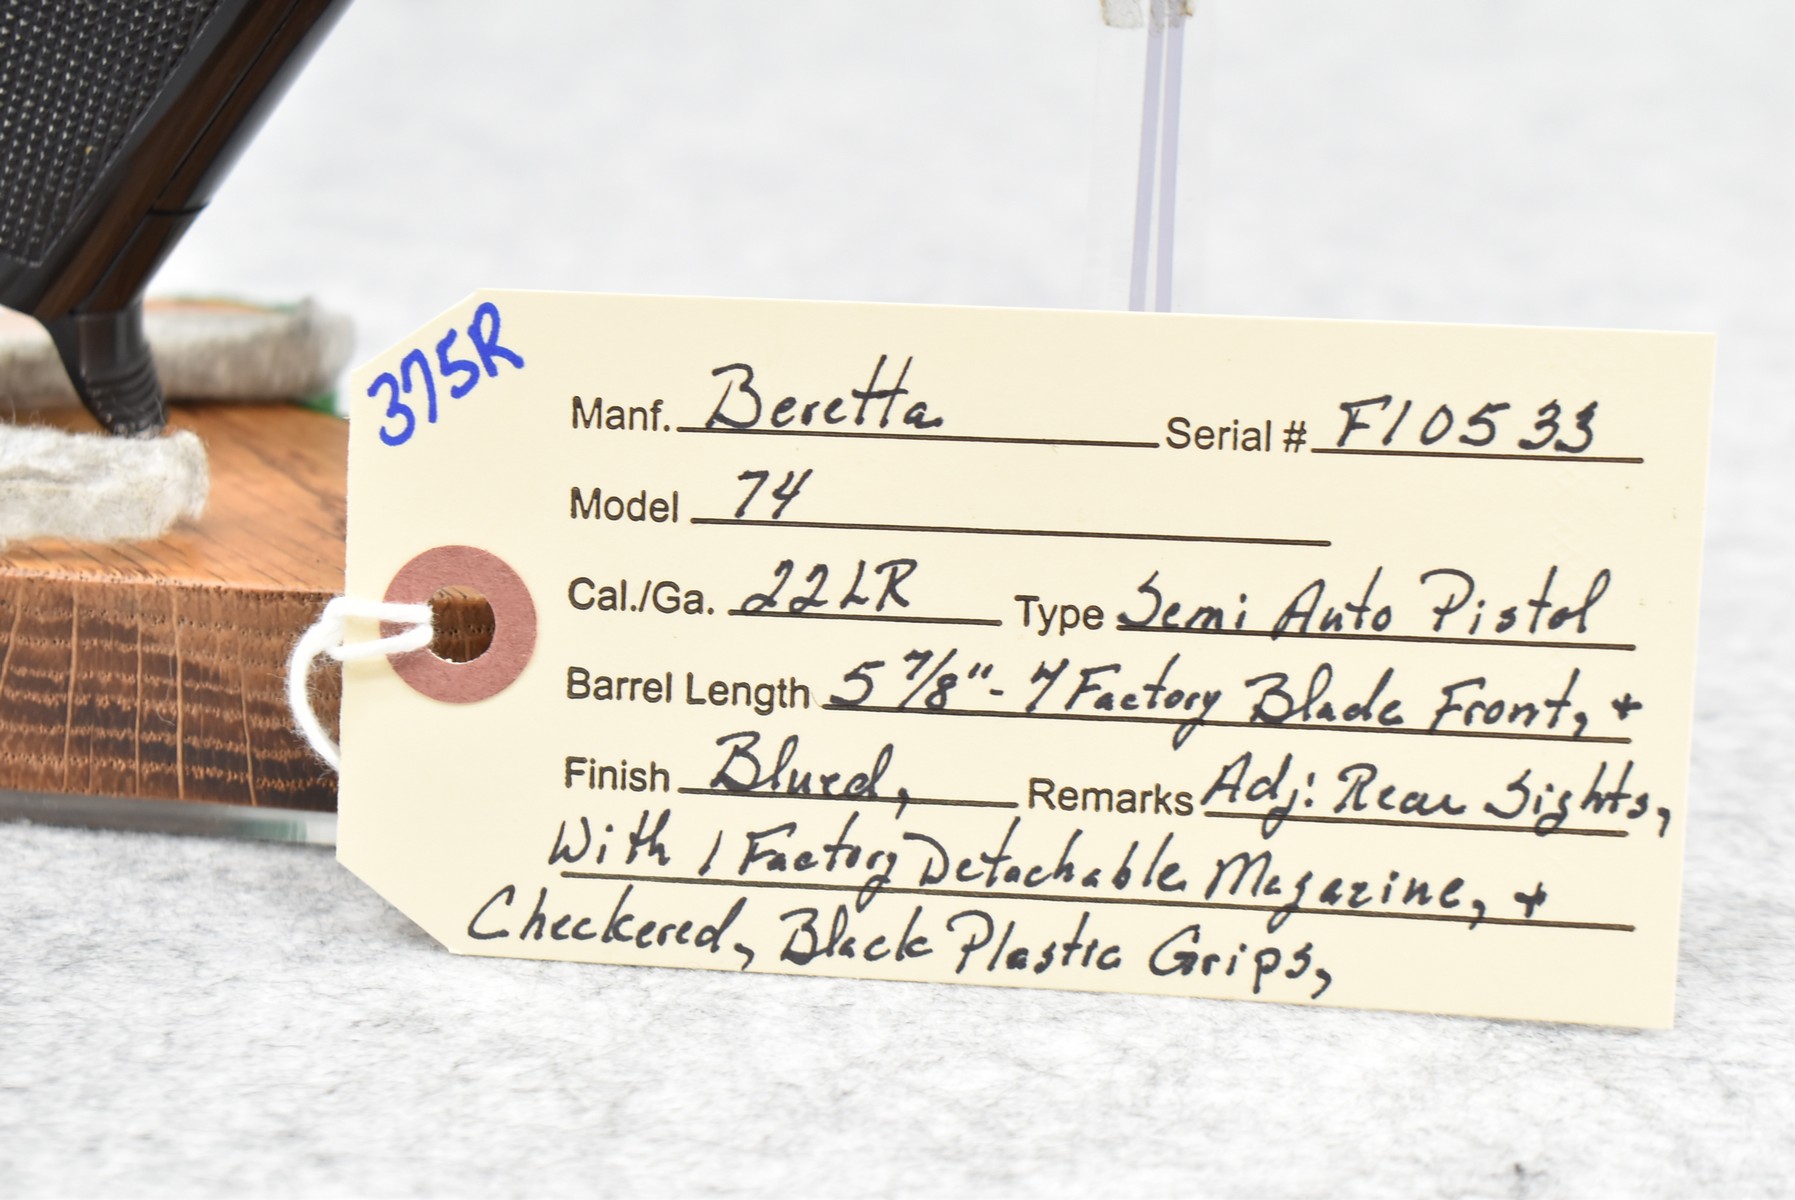 375R
Manf. Beretta Serial # F10533
Model 74
Cal./Ga. 22LR Type Semi Auto Pistol
Barrel Length 5 7/8" - 7 Factory Blade Front, +
Finish Blued, Remarks Adj: Rear Sights,
With 1 Factory Detachable Magazine, +
Checkered, Black Plastic Grips,